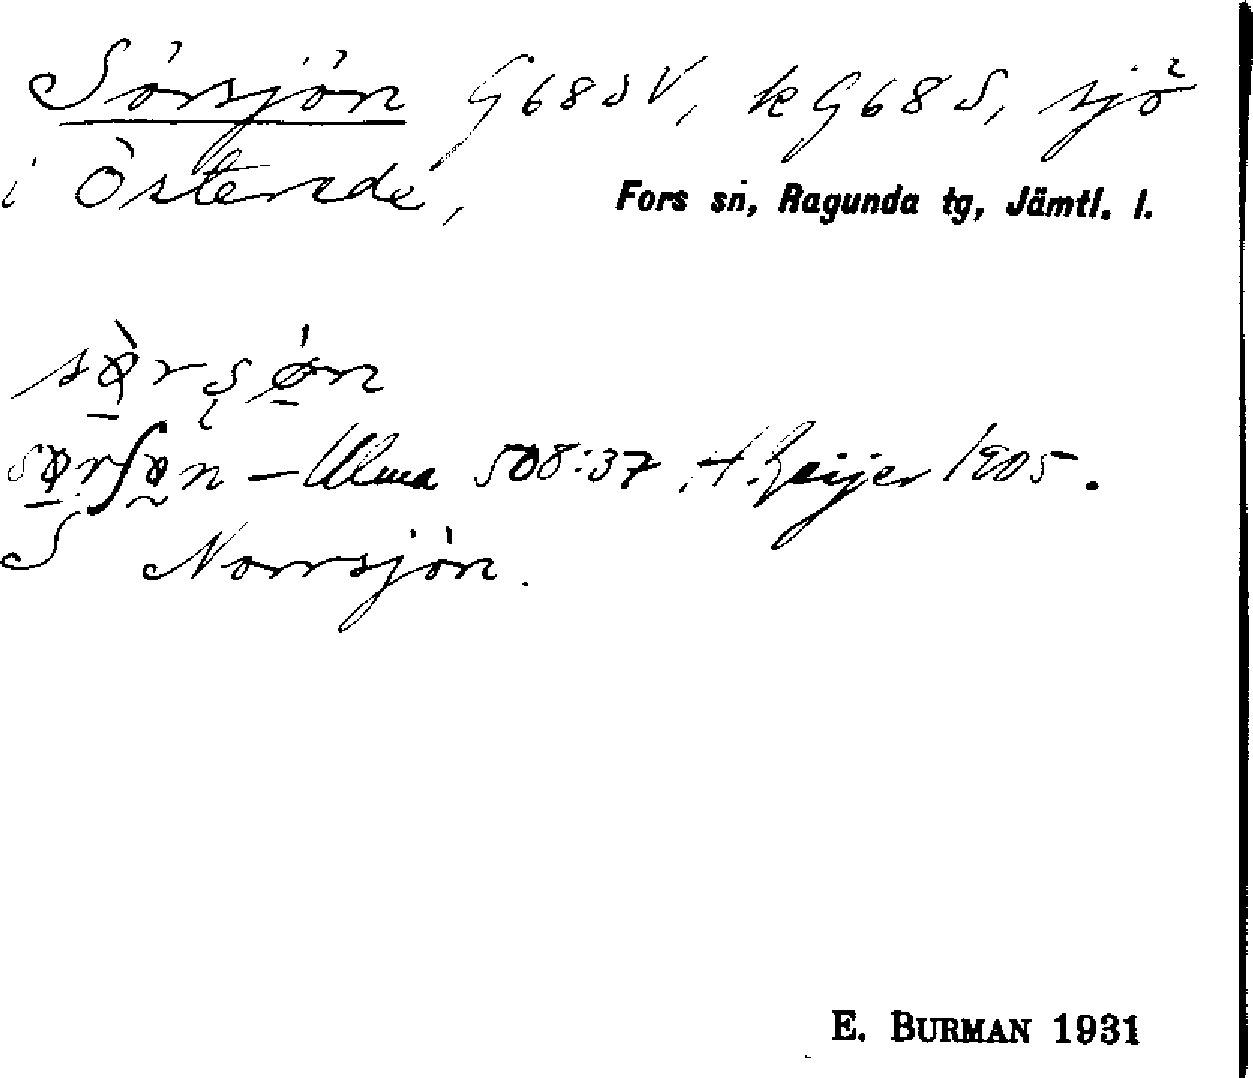 Sörsjön G68SV, kG68S, sjö
i Östende,
Fors sn, Ragunda tg, Jämtl. l.
Ulma 508:37, H. Geijer 1905.
S Norrsjön.
E. BURMAN 1931